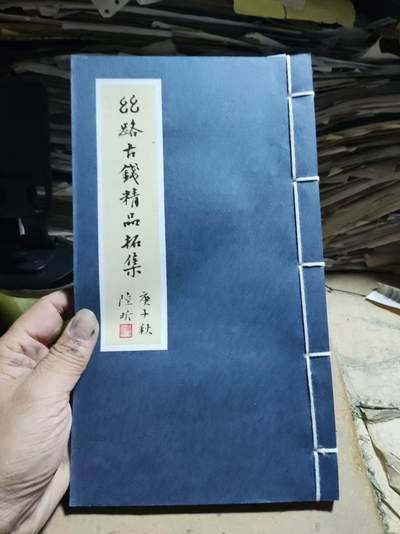 丝路古錢精品拓集
庚子秋
陸昕